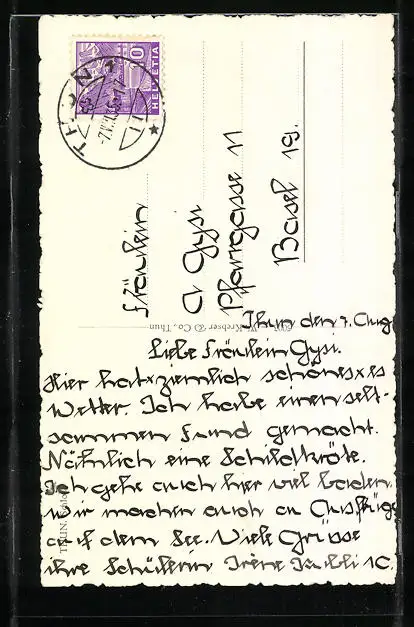 HELVETIA
10
THUN
Fräulein
A Gysi
Pfarrgasse 11
Basel 19.
W. Krebser & Co., Thun
Thun den 7. Aug
Liebe Fräulein Gysi.
Hier hat x ziemlich schönes x es
Wetter. Ich habe einen selt-
sammen Fund gemacht.
Nähmlich eine Schildkröte.
Ich gehe auch hier viel baden.
Wir machen auch a Ausflüge
auf dem See. Viele Grüsse
ihre Schülerin Irène 1C.
THUN.